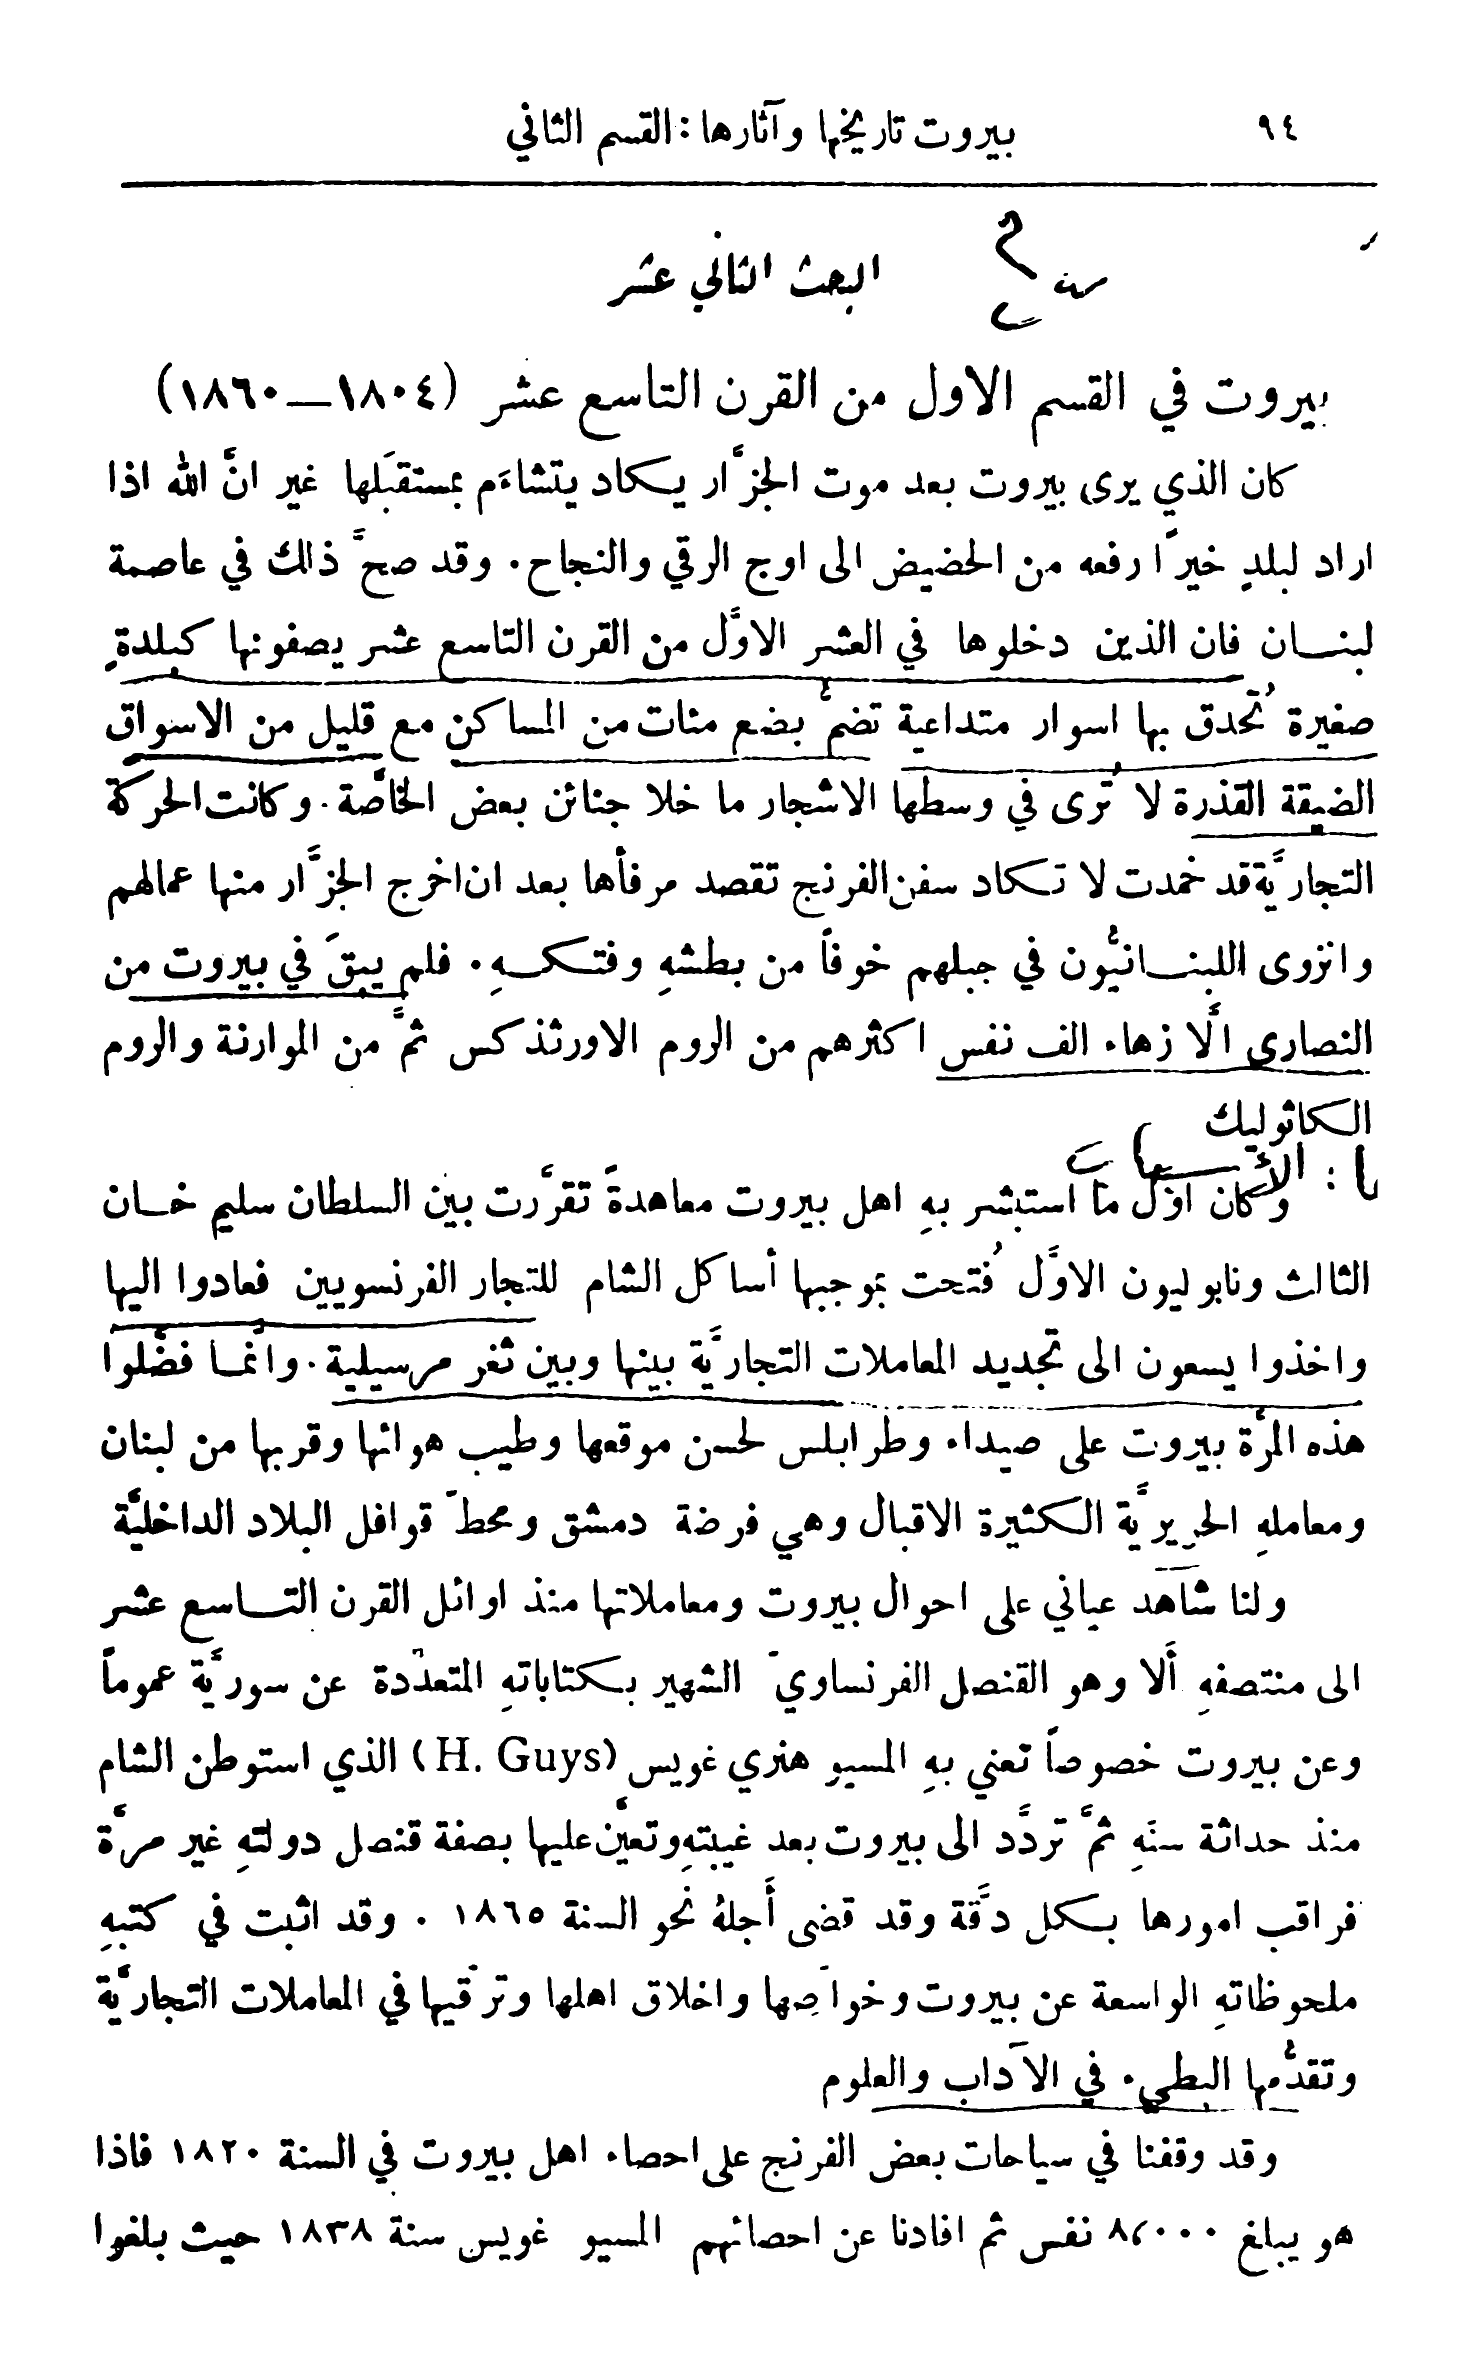 ٩٤ بيروت تاريخها وآثارها: القسم الثاني
البحث الثاني عشر
بيروت في القسم الاول من القرن التاسع عشر (١٨٠٤—١٨٦٠)
كان الذي يرى بيروت بعد موت الجزَّار يكاد يتشاءَم بمستقبَلها غير انَّ الله اذا
اراد لبلدٍ خيرًا رفعه من الحضيض الى اوج الرقي والنجاح. وقد صحَّ ذلك في عاصمة
لبنان فان الذين دخلوها في العشر الاوَّل من القرن التاسع عشر يصفونها كبلدةٍ
صغيرة تُحدق بها اسوار متداعية تضمُّ بضع مئات من المساكن مع قليل من الاسواق
الضيقة القذرة لا تُرى في وسطها الاشجار ما خلا جنائن بعض الخاصَّة. وكانت الحركة
التجاريَّة قد خمدت لا تكاد سفن الفرنج تقصد مرفأها بعد ان اخرج الجزَّار منها عمالهم
وانزوى اللبنانيُّون في جبلهم خوفاً من بطشهِ وفتكهِ. فلم يبقَ في بيروت من
النصارى الَّا زهاء الف نفس اكثرهم من الروم الاورثذكس ثمَّ من الموارنة والروم
الكاثوليك
ا: الأسباب
وكان اوَّل ما استبشر بهِ اهل بيروت معاهدةً تقرَّرت بين السلطان سليم خان
الثالث ونابوليون الاوَّل فُتحت بموجبها أساكل الشام للتجار الفرنسويين فعادوا اليها
واخذوا يسعون الى تجديد المعاملات التجاريَّة بينها وبين ثغر مرسيلية. وانَّما فضَّلوا
هذه المرَّة بيروت على صيداء وطرابلس لحسن موقعها وطيب هوائها وقربها من لبنان
ومعاملهِ الحريريَّة الكثيرة الاقبال وهي فرضة دمشق ومحطّ قوافل البلاد الداخليَّة
ولنا شاهد عياني على احوال بيروت ومعاملاتها منذ اوائل القرن التاسع عشر
الى منتصفهِ أَلا وهو القنصل الفرنساويّ الشهير بكتاباتهِ المتعدّدة عن سوريَّة عموماً
وعن بيروت خصوصاً نعني بهِ المسيو هنري غويس (H. Guys) الذي استوطن الشام
منذ حداثة سنّهِ ثمَّ تردَّد الى بيروت بعد غيبتهِ وتعيَّن عليها بصفة قنصل دولتهِ غير مرَّة
فراقب امورها بكل دقَّة وقد قضى أَجلهُ نحو السنة ١٨٦٥. وقد اثبت في كتبهِ
ملحوظاتهِ الواسعة عن بيروت وخواصّها واخلاق اهلها وترقّيها في المعاملات التجاريَّة
وتقدُّمها البطيء في الآداب والعلوم
وقد وقفنا في سياحات بعض الفرنج على احصاء اهل بيروت في السنة ١٨٢٠ فاذا
هو يبلغ ٨،٠٠٠ نفس ثم افادنا عن احصائهم المسيو غويس سنة ١٨٣٨ حيث بلغوا